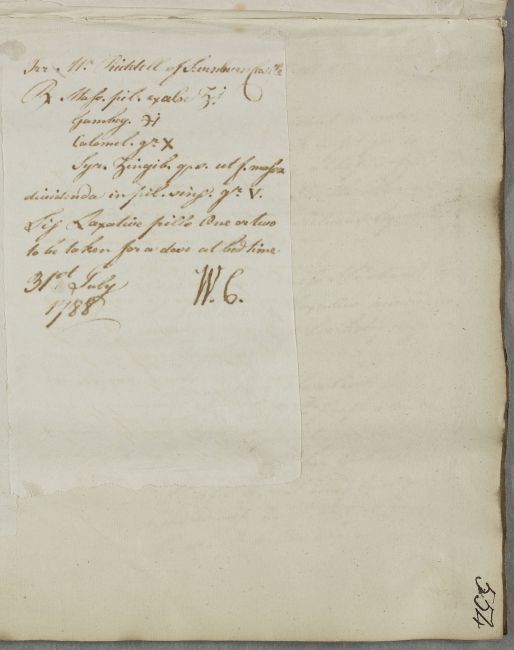 For Mr. Riddell of
℞ Mass. pil. ex aloe ʒi
Gambog. ℈i
Calomel. gr. X
Syr. Zingib. q. s. ut f. massa
dividenda in pil. sing. gr. V.
Sig Laxative pills One or two
to be taken for a dose at bed time
31st July
1788
W. C.
554